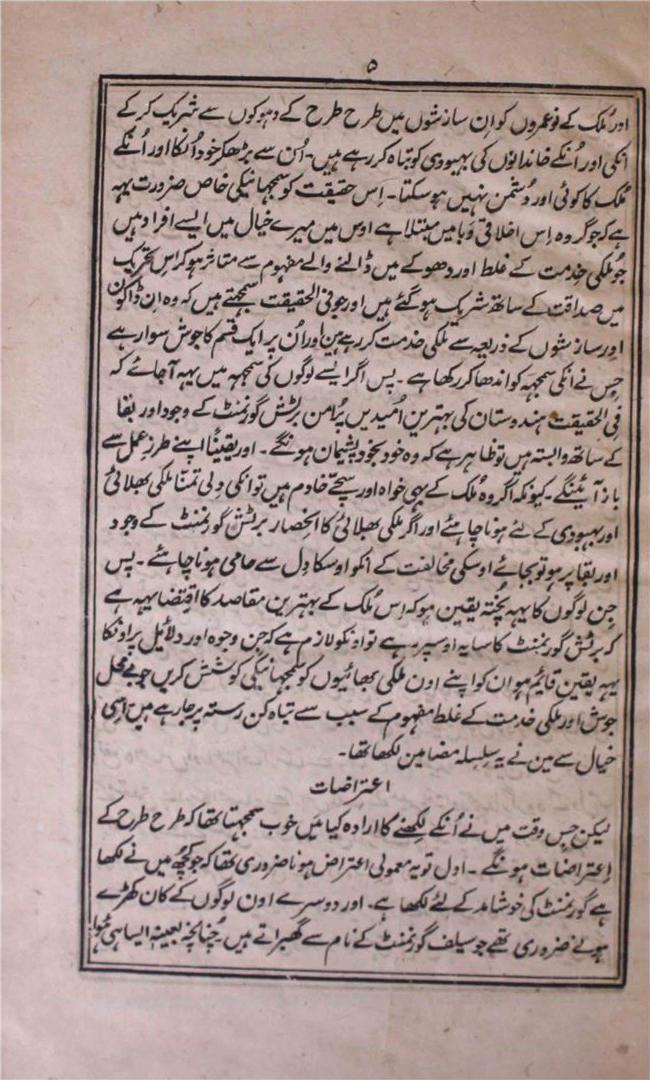 ۵
اور مُلک کے نوعمروں کو اِن سازشوں میں طرح طرح کے دہوکوں سے شریک کر کے
انکی اور اُنکے خاندانوں کی بہبودی کو تباہ کر رہے ہیں۔ اُن سے بڑھکر خود اُنکا اور اُنکے
مُلک کا کوئی اور دُشمن نہیں ہو سکتا۔ اِس حقیقت کو سمجہانیکی خاص ضرورت یہہ
ہے کہ جو گروہ اِس اخلاقی وَبا میں مبتلا ہے اوس میں میرے خیال میں ایسے افراد ہیں
جو مُلکی خِدمت کے غلط اور دھوکے میں ڈالنے والے مفہوم سے متاثر ہو کر اس تحریک
میں صداقت کے ساتھ شریک ہو گئے ہیں اور جو فی الحقیقت سمجھتے ہیں کہ وہ اِن ڈاکوں
اور سازشوں کے ذریعہ سے مُلکی خدمت کر رہے ہیں اور اُن پر ایک قسم کا جوش سوار ہے
جس نے انکی سمجہہ کو اندھا کر رکھا ہے۔ پس اگر ایسے لوگوں کی سمجہہ میں یہہ آ جائے کہ
فی الحقیقت ہندوستان کی بہترین اُمیدیں پُر امن برٹش گورنمنٹ کے وجود اور بقا
کے ساتھ وابستہ ہیں تو ظاہر ہے کہ وہ خود بخود پشیمان ہونگے۔ اور یقیناً اپنے طرزِ عمل سے
باز آئینگے۔ کیونکہ اگر وہ مُلک کے بہی خواہ اور سچّے خادم ہیں تو انکی دِلی تمنّا ملکی بھلائی
اور بہبودی کے لئے ہونا چاہئے اور اگر مُلکی بھلائی کا انحصار برٹش گورنمنٹ کے وجود
اور بقا پر ہو تو بجائے اوسکی مخالفت کے انکو اوسکا دِل سے حامی ہونا چاہئے۔ پس
جِن لوگوں کا یہہ پختہ یقین ہو کہ اِس مُلک کے بہترین مقاصد کا اقتضا یہہ ہے
کہ برٹش گورنمنٹ کا سایہ اوسپر رہے تو اونکو لازم ہے کہ جن وجوہ اور دلائیل پر اونکا
یہہ یقین قائیم ہو ان کو اپنے اون ملکی بھائیوں کو سمجہانیکی کوشش کریں جو بے محل
جوش اور ملکی خدمت کے غلط مفہوم کے سبب سے تباہ کن رستہ پر جا رہے ہیں اسی
خیال سے مین نے یہ سِلسِلہ مضامین لکھا تھا۔
اعتراضات
لیکن جس وقت میں نے اُنکے لِکھنے کا ارادہ کیا میں خوب سمجہتا تھا کہ طرح طرح کے
اِعتراضات ہونگے۔ اول تو یہ معمولی اعتراض ہونا ضروری تھا کہ جو کُچھ میں نے لکھا
ہے گورنمنٹ کی خوشامد کے لئے لکھا ہے۔ اور دوسرے اون لوگوں کے کان کھڑے
ہونے ضروری تھے جو سیلف گورنمنٹ کے نام سے گھبراتے ہیں۔ چُنانچہ بعینہٖ ایسا ہی ہُوا